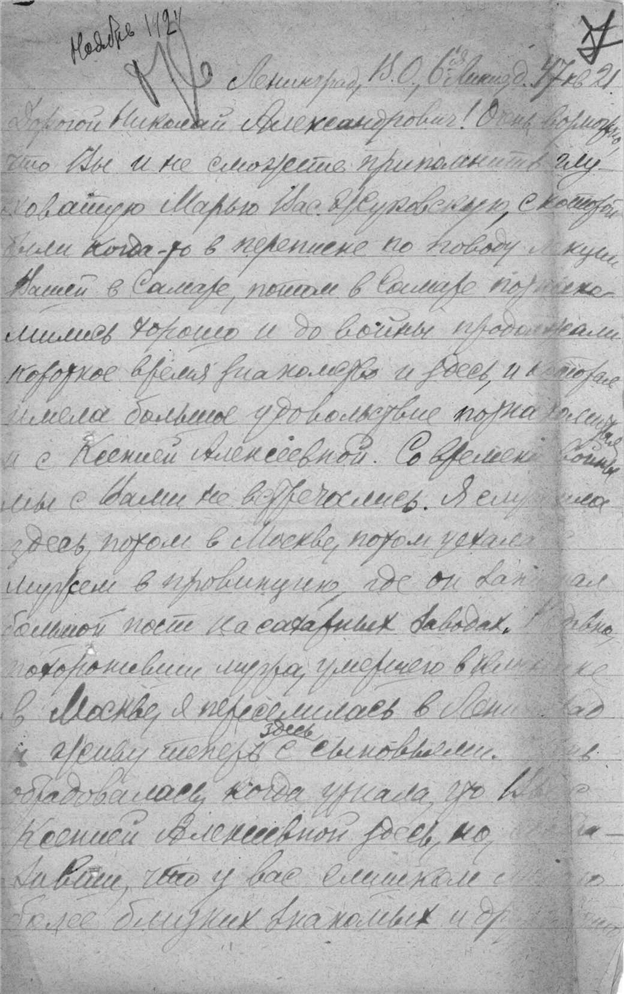 Ноябрь 1924
Ленинград, В.О., 6ая Линия д. 47 кв 21
Дорогой Николай Александрович! Очень возможно,
что Вы и не сможете припомнить глу-
ховатую Марью Вас. Жуковскую, с которой
были когда-то в переписке по поводу лекции
Вашей в Самаре, потом в Самаре познако-
мились хорошо и до войны продолжали
короткое время знакомство и здесь, и которая
имела большое удовольствие познакомиться
и с Ксенией Алексеевной. Со времени войны
мы с Вами не встречались. Я служила
здесь, потом в Москве, потом уехала с
мужем в провинцию, где он занимал
большой пост на сахарных заводах.
похоронивши мужа, умершего в клинике
в Москве, я переселилась в Ленинград
и живу теперь здесь с сыновьями.
обрадовалась, когда узнала, что Вы с
Ксенией Алексеевной здесь, но,
что у вас слишком
более близких знакомых и